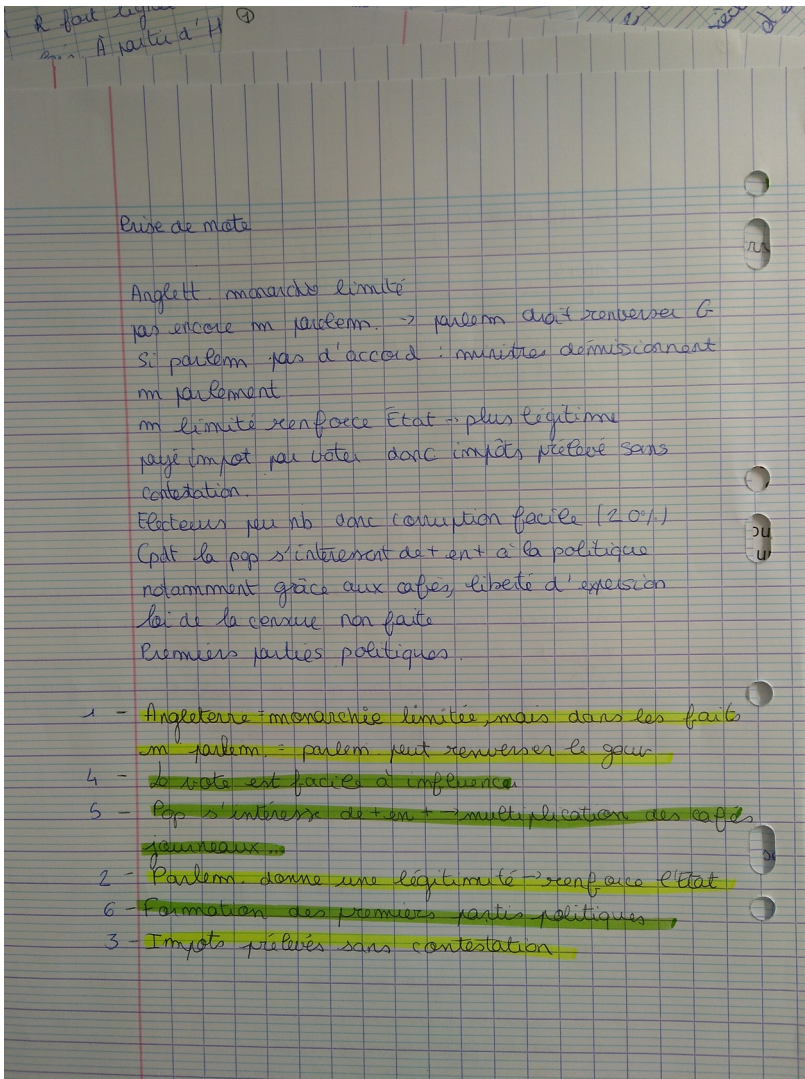 R fait
①
À partir d'H
Prise de note
Anglett. monarchie limité
pas encore m parlem. → parlem droit renverser G
si parlem pas d'accord : ministres démissionnent
m parlement
m limité renforce État → plus légitime
payé impot par voter donc impôts prélevé sans
contestation.
Electeurs peu nb donc corruption facile (20%)
Cpdt la pop s'intéressent de + en + à la politique
notamment grâce aux cafés, liberté d'expression
loi de la censure non faite
Premiers parties politiques.
1 - Angleterre = monarchie limitée, mais dans les faits
m parlem. = parlem. peut renverser le gouv
4 - Le vote est facile à influencer
5 - Pop s'intéresse de + en + → multiplication des cafés
journeaux...
2 - Parlem. donne une légitimité → renforce l'État
6 - Formation des premiers partis politiques
3 - Impots prélevés sans contestation